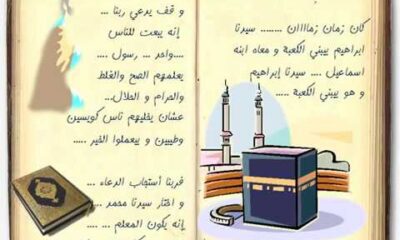 كان زمان زماااان ........ سيدنا
ابراهيم بيبني الكعبة و معاه ابنه
اسماعيل .... سيدنا إبراهيم
و هو بيبني الكعبة ....
و قف يدعي ربنا ...
إنه يبعت للناس
....واحد ... رسول ....
يعلمهم الصح والغلط
والحرام و الحلال...
عشان يخليهم ناس كويسين
وطيبين و يعملوا الخير .....
فربنا أستجاب الدعاء ...
و اختار سيدنا محمد ...
إنه يكون المعلم ....